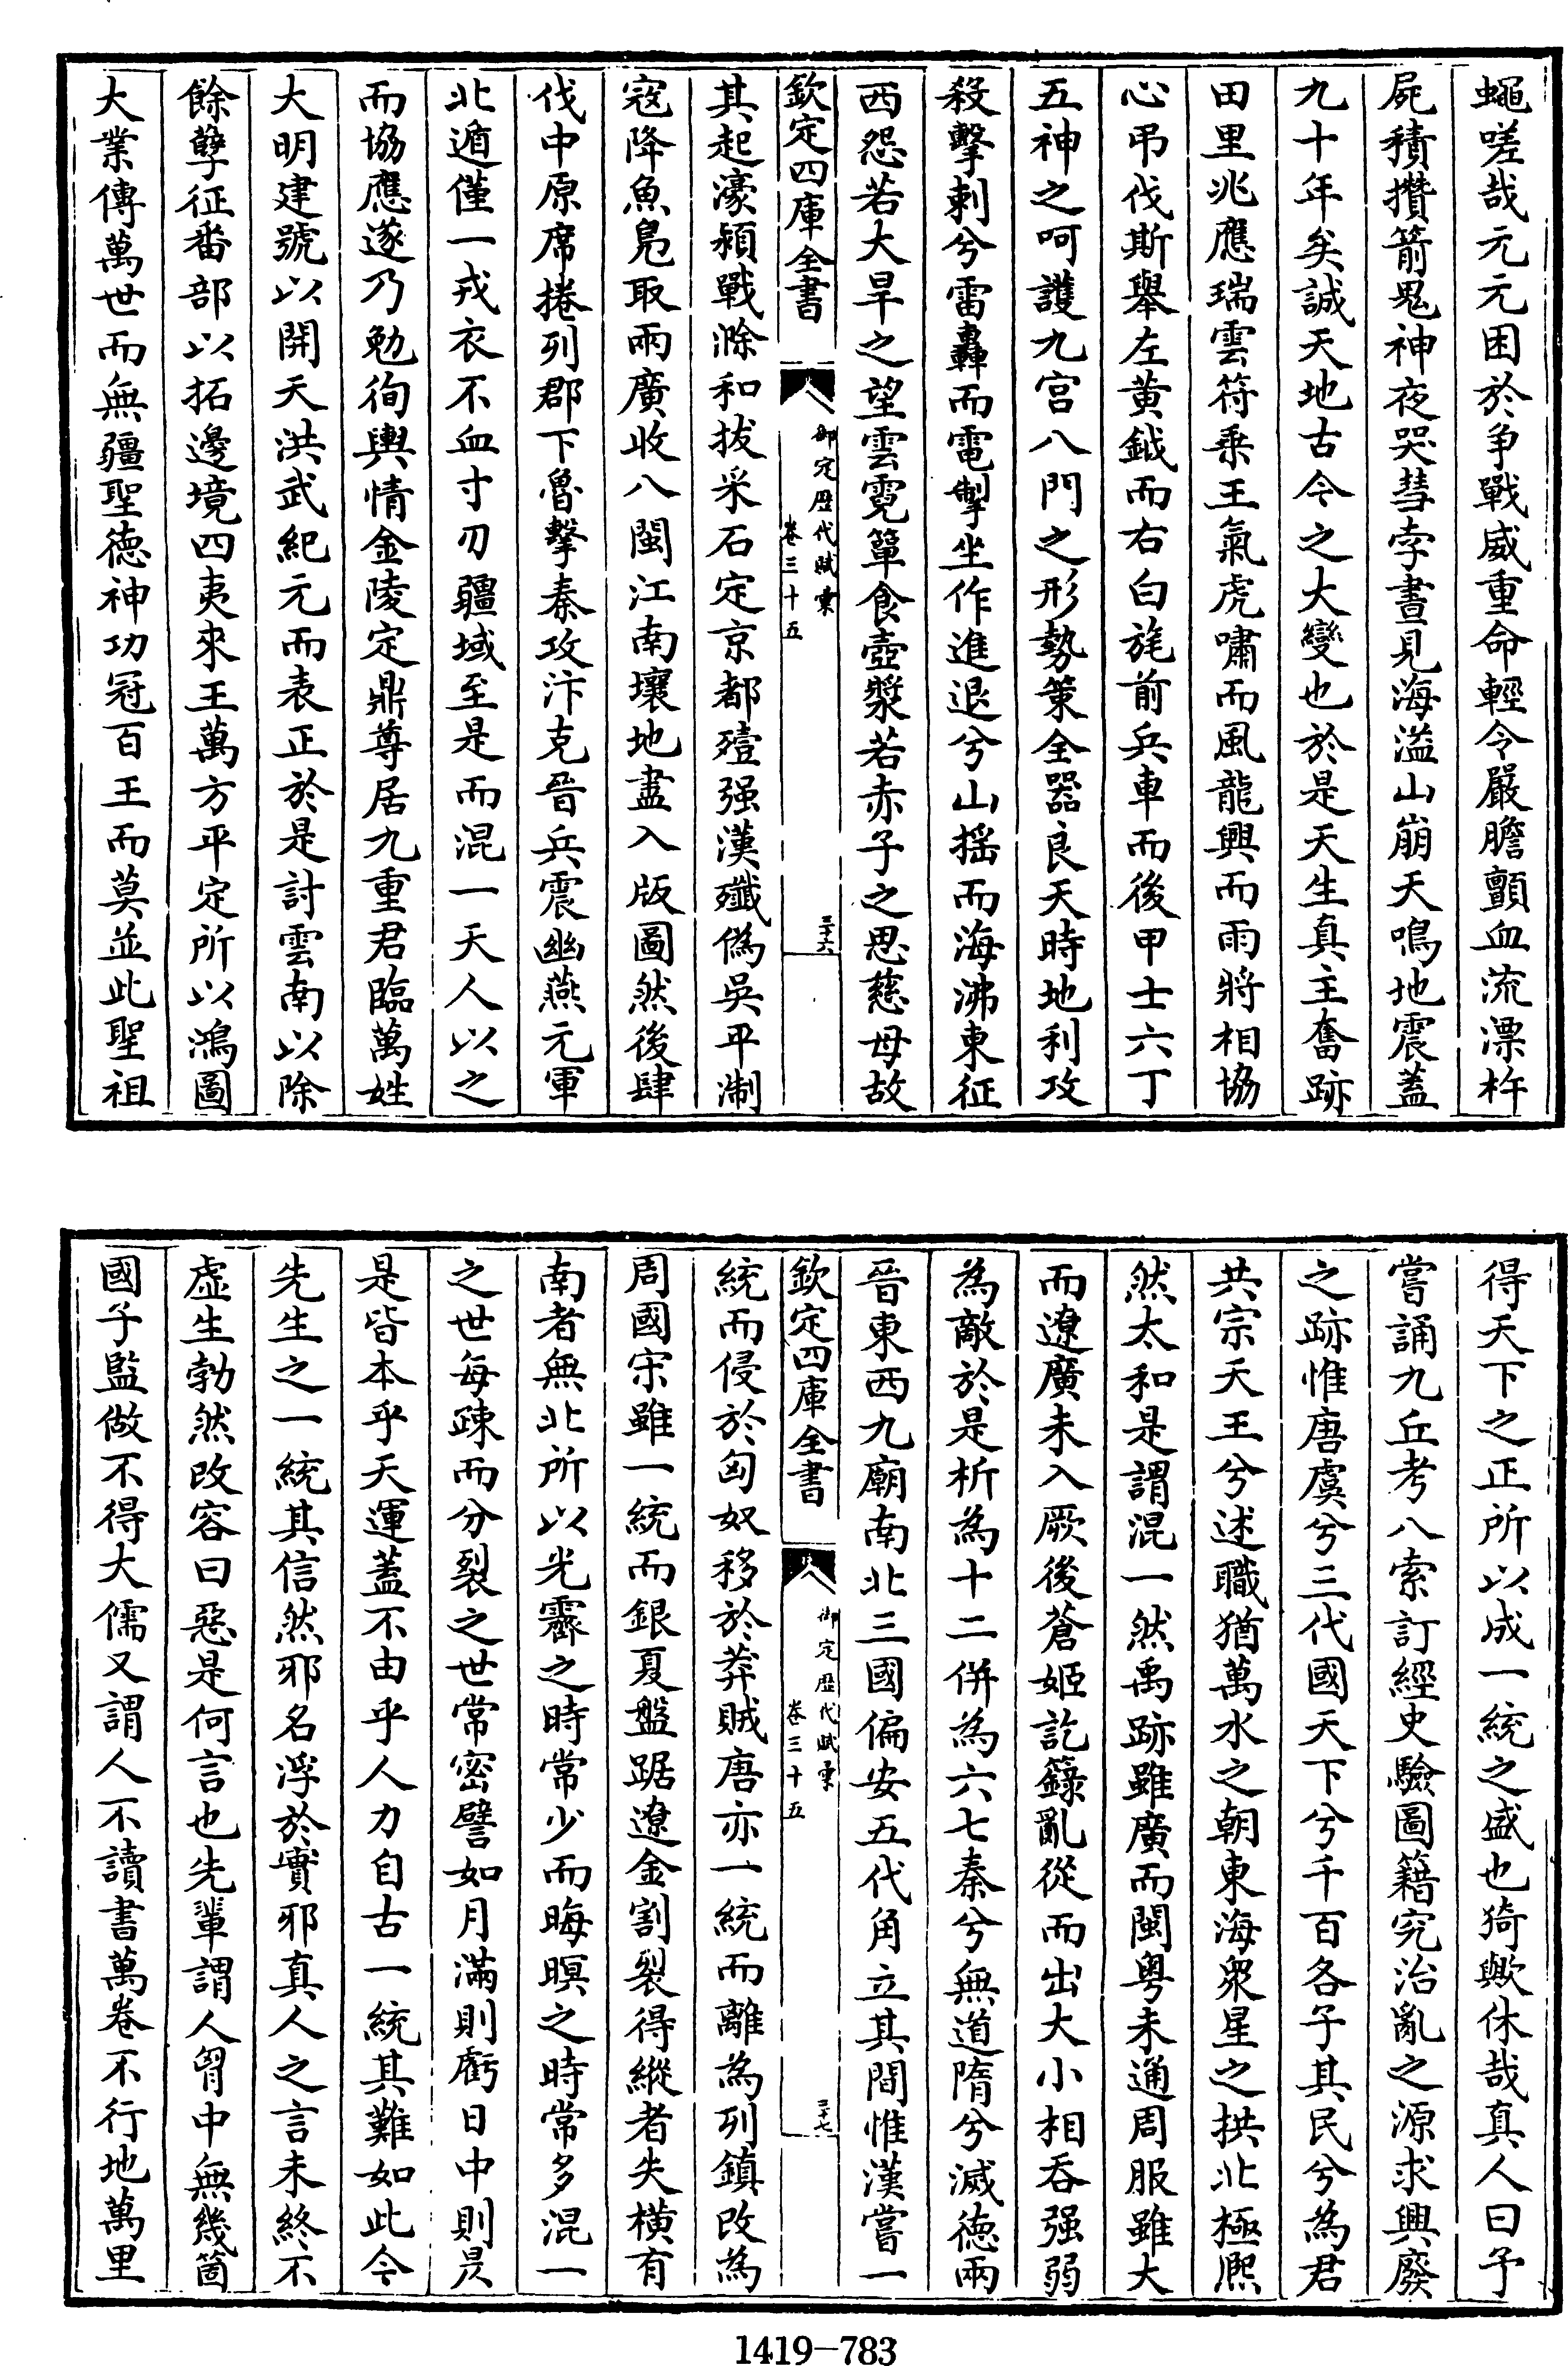 蠅嗟哉元元困於争戰威重命輕令嚴膽顫血流漂杵
屍積攢箭鬼神夜哭彗孛晝見海溢山崩天鳴地震蓋
九十年矣誠天地古今之大變也於是天生真主奮跡
田里兆應瑞雲符乗王氣虎嘯而風龍興而雨將相協
心弔伐斯舉左黄鉞而右白旄前兵車而後甲士六丁
五神之呵護九宫八門之形勢策全器良天時地利攻
殺擊刺兮雷轟而電掣坐作進退兮山摇而海沸東征
西怨若大旱之望雲霓簞食壺漿若赤子之思慈母故
欽定四庫全書
御定歴代賦彚
卷三十五
三十六
其起濠潁戰滁和拔采石定京都殪强漢殲偽吳平淛
寇降魚鳬取兩廣收八閩江南壤地盡入版圖然後肆
伐中原席捲列郡下魯擊秦攻汴克晉兵震幽燕元軍
北遁僅一戎衣不血寸刃疆域至是而混一天人以之
而協應遂乃勉徇輿情金陵定鼎尊居九重君臨萬姓
大明建號以開天洪武紀元而表正於是討雲南以除
餘孽征番部以拓邊境四夷來王萬方平定所以鴻圖
大業傳萬世而無疆聖德神功冠百王而莫並此聖祖
得天下之正所以成一統之盛也猗歟休哉真人曰予
嘗誦九丘考八索訂經史驗圖籍究治亂之源求興廢
之跡惟唐虞兮三代國天下兮千百各子其民兮為君
共宗天王兮述職猶萬水之朝東海衆星之拱北極熈
然太和是謂混一然禹跡雖廣而閩粤未通周服雖大
而遼廣未入厥後蒼姬訖籙亂從而出大小相吞强弱
為敵於是析為十二併為六七秦兮無道隋兮滅德兩
晉東西九廟南北三國偏安五代角立其間惟漢嘗一
欽定四庫全書
御定歴代賦彚
卷三十五
三十七
統而侵於匈奴移於莽賊唐亦一統而離為列鎮改為
周國宋雖一統而銀夏盤踞遼金割裂得縱者失横有
南者無北所以光霽之時常少而晦暝之時常多混一
之世每疎而分裂之世常密譬如月滿則虧日中則昃
是皆本乎天運蓋不由乎人力自古一統其難如此今
先生之一統其信然邪名浮於實邪真人之言未終不
虚生勃然改容曰惡是何言也先輩謂人胷中無幾箇
國子監做不得大儒又謂人不讀書萬卷不行地萬里
1419-783